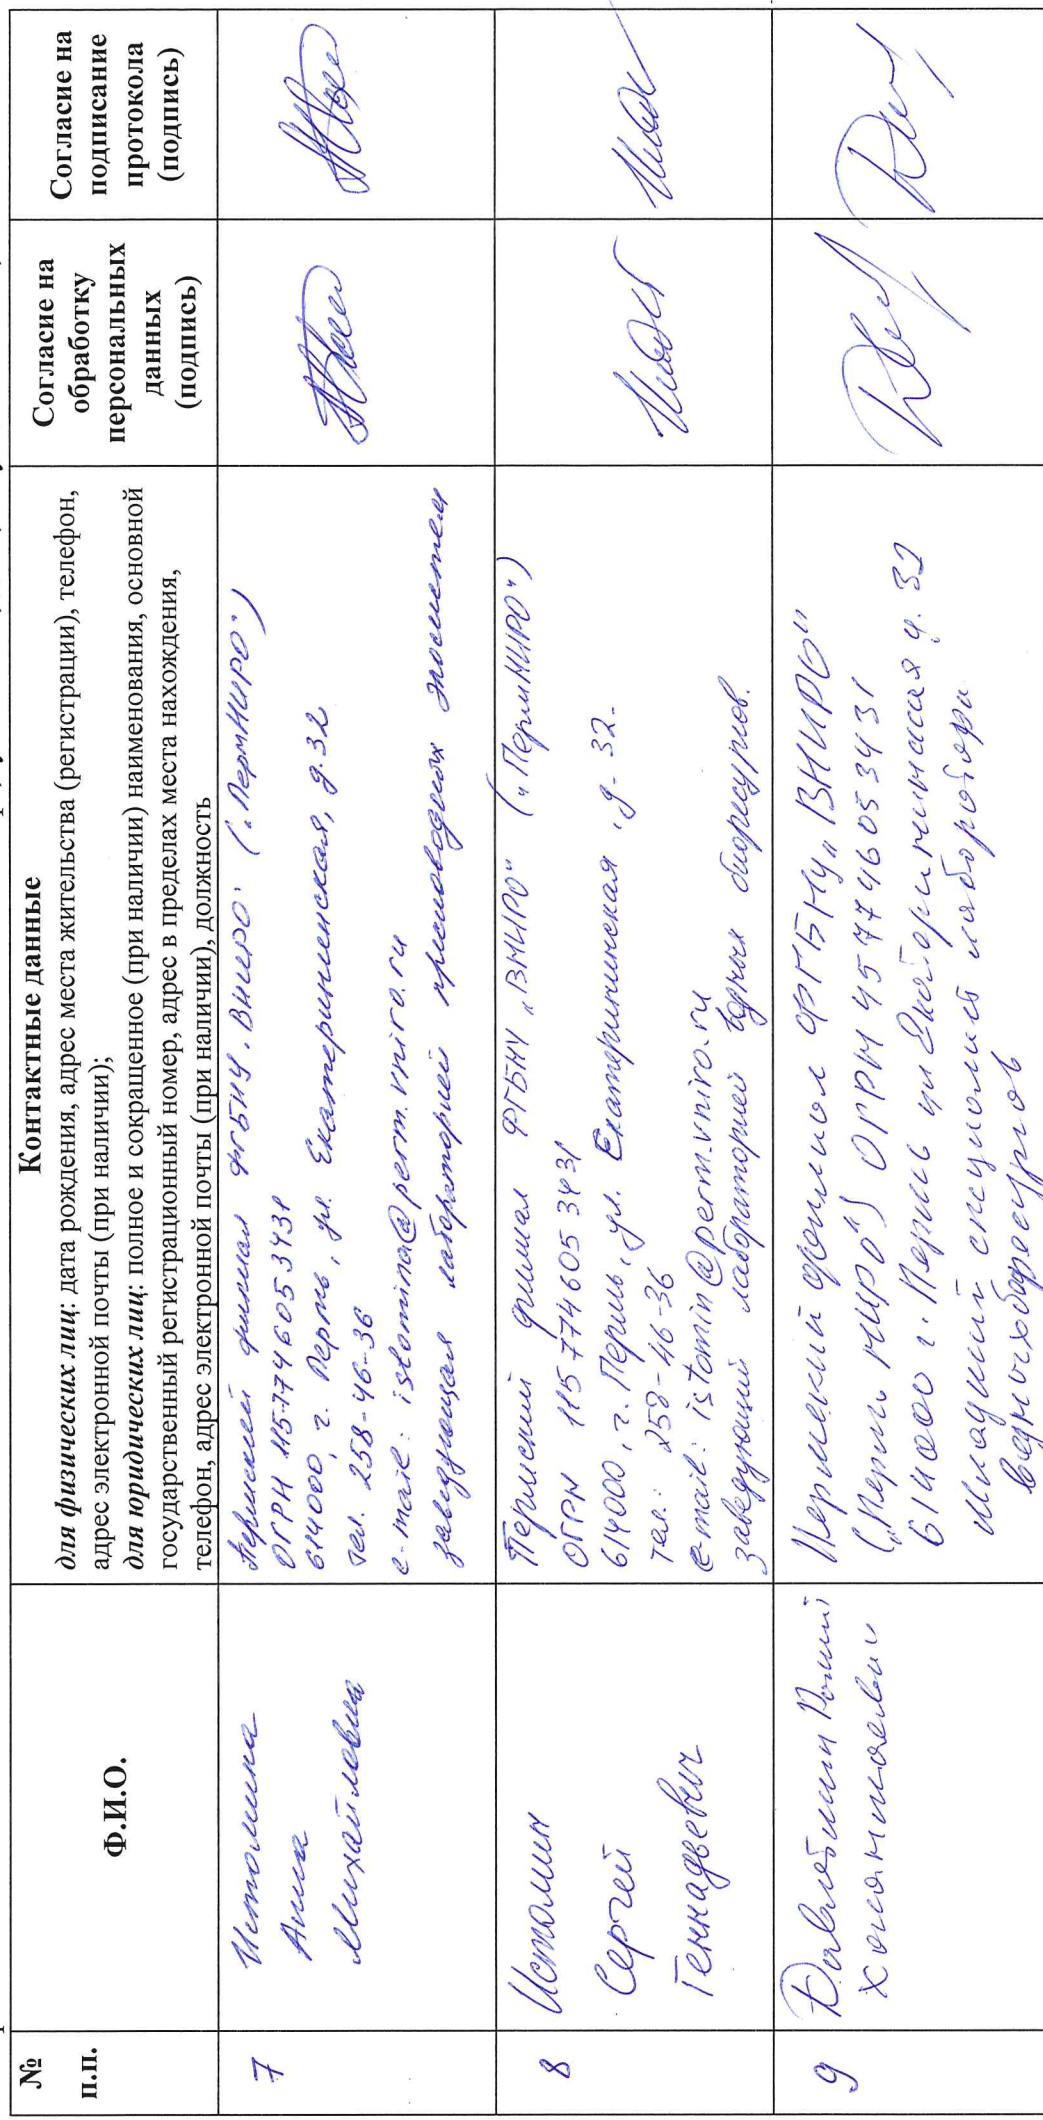 №
п.п.
Ф.И.О.
Контактные данные
для физических лиц: дата рождения, адрес места жительства (регистрации), телефон,
адрес электронной почты (при наличии);
для юридических лиц: полное и сокращенное (при наличии) наименования, основной
государственный регистрационный номер, адрес в пределах места нахождения,
телефон, адрес электронной почты (при наличии), должность
Согласие на
обработку
персональных
данных
(подпись)
Согласие на
подписание
протокола
(подпись)
7
Истомина
Анна
Михайловна
Пермский филиал ФГБНУ "ВНИРО" ("ПермНИРО")
ОГРН 1157746053431
614000, г. Пермь, ул. Екатерининская, д.32
тел. 258-46-36
e-mail: istomina@perm.vniro.ru
заведующая лабораторией пресноводных экосистем
8
Истомин
Сергей
Геннадьевич
Пермский филиал ФГБНУ "ВНИРО" ("ПермНИРО")
ОГРН 1157746053431
614000, г. Пермь, ул. Екатерининская, д. 32.
тел.: 258-46-36
e-mail: istomin@perm.vniro.ru
заведующий лабораторией водных биоресурсов.
9
Пермский филиал ФГБНУ "ВНИРО"
("Перм НИРО") ОГРН 457746053431
614000 г. Пермь ул Екатерининская д. 32
Младший специалист лаборатори
водных биоресурсов